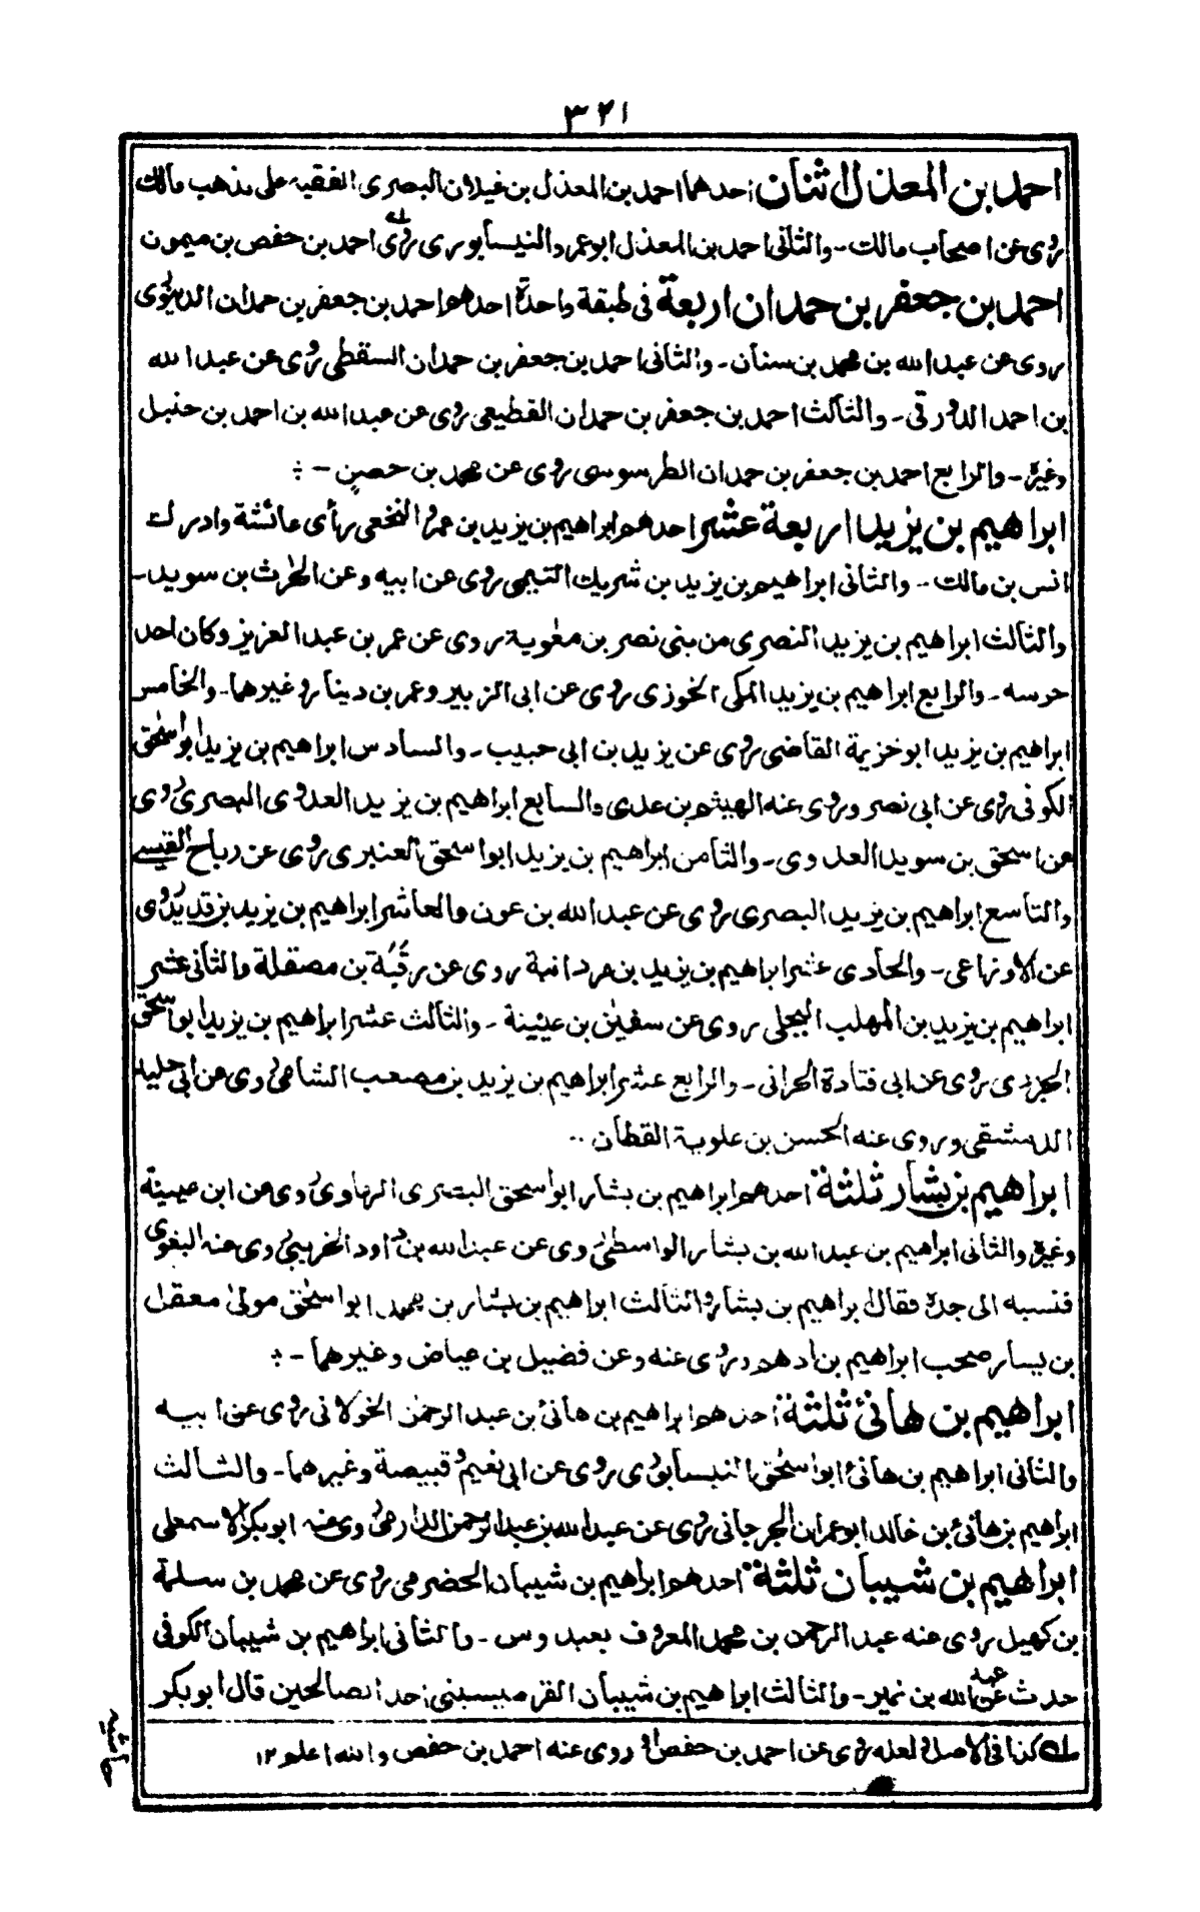 ٣٢١
احمد بن المعذل اثنان احدهما احمد بن المعذل بن غيلان البصرى الفقيه على مذهب مالك
روى عن اصحاب مالك - والثانى احمد بن المعذل ابو عمر والنيسابورى روى له احمد بن حفص بن ميمون
احمد بن جعفر بن حمدان اربعة فى طبقة واحدة احدهم احمد بن جعفر بن حمدان الدينورى
روى عن عبد الله بن محمد بن سنان - والثانى احمد بن جعفر بن حمدان السقطى روى عن عبد الله
بن احمد الدورقى - والثالث احمد بن جعفر بن حمدان القطيعى روى عن عبد الله بن احمد بن حنبل
وغيره - والرابع احمد بن جعفر بن حمدان الطرسوسى روى عن محمد بن حصين -
ابراهيم بن يزيد اربعة عشر احدهم ابراهيم بن يزيد بن عمرو النخعى رأى عائشة وادرك
انس بن مالك - والثانى ابراهيم بن يزيد بن شريك التيمى روى عن ابيه وعن الحرث بن سويد -
والثالث ابراهيم بن يزيد النصرى من بنى نصر بن معوية روى عن عمر بن عبد العزيز وكان احد
حرسه - والرابع ابراهيم بن يزيد المكى الخوزى روى عن ابى الزبير وعمر بن دينار وغيرهما - والخامس
ابراهيم بن يزيد ابو خزيمة القاضى روى عن يزيد بن ابى حبيب - والسادس ابراهيم بن يزيد ابو اسحٰق
الكوفى روى عن ابى نصر وروى عنه الهيثم بن عدى والسابع ابراهيم بن يزيد العدوى البصرى روى
عن اسحق بن سويد العدوى - والثامن ابراهيم بن يزيد ابو اسحق العنبرى روى عن رباح القيسى
والتاسع ابراهيم بن يزيد البصرى روى عن عبد الله بن عون والعاشر ابراهيم بن يزيد بن قديد روى
عن الاوزاعى - والحادى عشر ابراهيم بن يزيد بن مردانبة روى عن رقبة بن مصقلة والثانى عشر
ابراهيم بن يزيد بن المهلب البجلى روى عن سفين بن عيينة - والثالث عشر ابراهيم بن يزيد ابو اسحق
الجزرى روى عن ابى قتادة الحرانى - والرابع عشر ابراهيم بن يزيد بن مصعب الشامى روى عن ابى خليد
الدمشقى وروى عنه الحسن بن علوية القطان
ابراهيم بن بشار ثلثة احدهم ابراهيم بن بشار ابو اسحق البصرى الرمادى روى عن ابن عيينة
وغيره والثانى ابراهيم بن عبد الله بن بشار الواسطى روى عن عبد الله بن داود الخريبى روى عنه البغوى
فنسبه الى جده فقال ابراهيم بن بشار والثالث ابراهيم بن بشار بن محمد ابو اسحٰق مولى معقل
بن يسار صحب ابراهيم بن ادهم وروى عنه وعن فضيل بن عياض وغيرهما -
ابراهيم بن هانئ ثلثة احدهم ابراهيم بن هانئ بن عبد الرحمٰن الخولانى روى عن ابيه
والثانى ابراهيم بن هانئ ابو اسحٰق النيسابورى روى عن ابى نعيم وقبيصة وغيرهما - والثالث
ابراهيم بن هانئ بن خالد ابو عمران الجرجانى روى عن عبد الله بن عبد الرحمن الدارمى روى عنه ابو بكر الاسمعيلى
ابراهيم بن شيبان ثلثة احدهم ابراهيم بن شيبان الحضرمى روى عن محمد بن سلمة
بن كهيل روى عنه عبد الرحمن بن محمد المعروف بعبدوس - والثانى ابراهيم بن شيبان الكوفى
حدث عن عبد الله بن نمير - والثالث ابراهيم بن شيبان القرميسينى احد الصالحين قال ابو بكر
له كذا فى الاصل ولعله روى عن احمد بن حفص او روى عنه احمد بن حفص والله اعلم ١٢
حاشيه